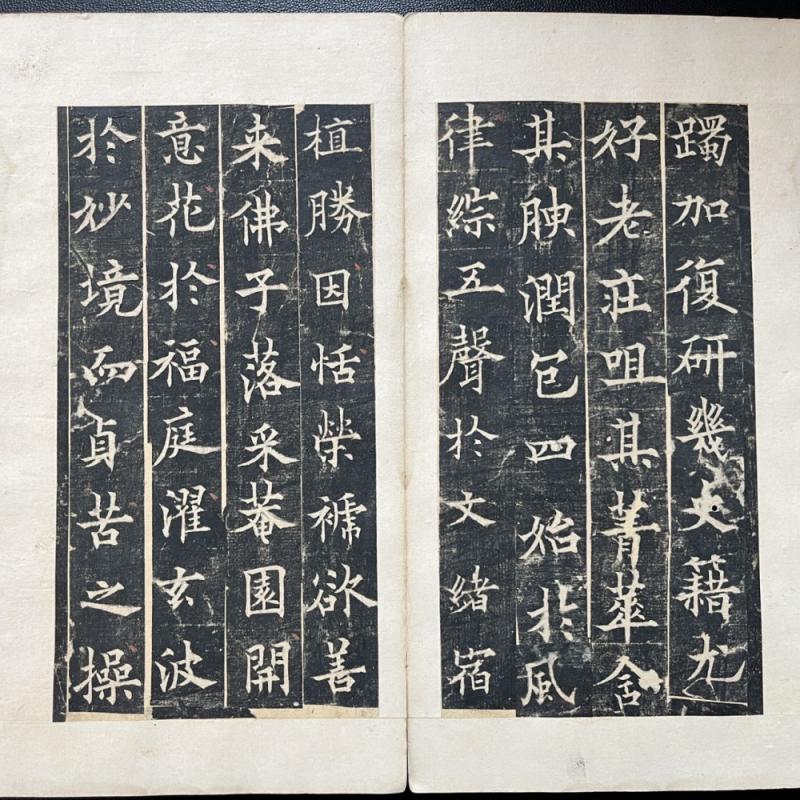 躅加復研幾史籍尤
好老莊咀其菁華含
其腴潤包四始於風
律綜五聲於文緒宿
植勝因恬榮褫欲善
来佛子落采菴園開
意花於福庭濯玄波
於妙境而貞苦之操